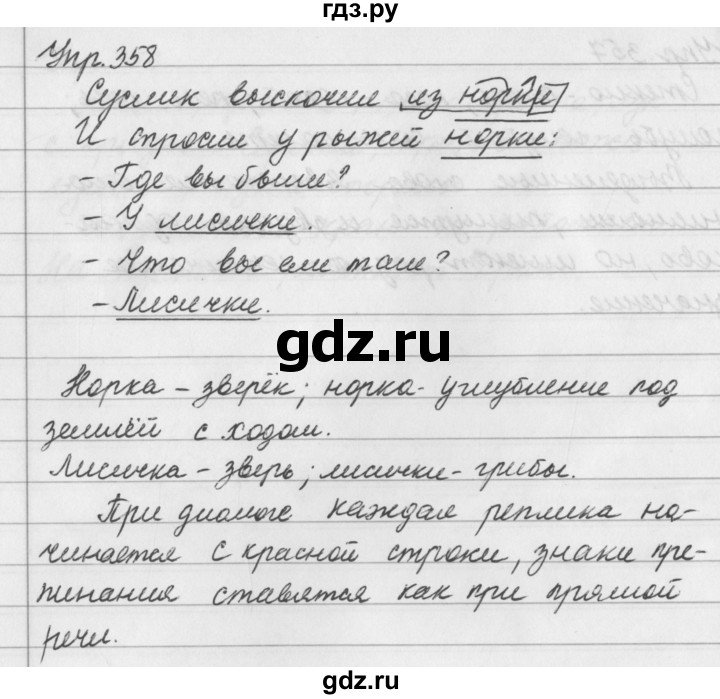 гдз.ру
Упр. 358
Суслик выскочил из норки
И спросил у рыжей норки:
- Где вы были?
- У лисички.
- Что вы ели там?
- Лисички.
gdz.ru
Норка - зверёк; норка - углубление под
землёй с ходом.
Лисичка - зверь; лисички - грибы.
При диалоге каждая реплика на-
чинается с красной строки, знаки пре-
пинания ставятся как при прямой
речи.
gdz.ru